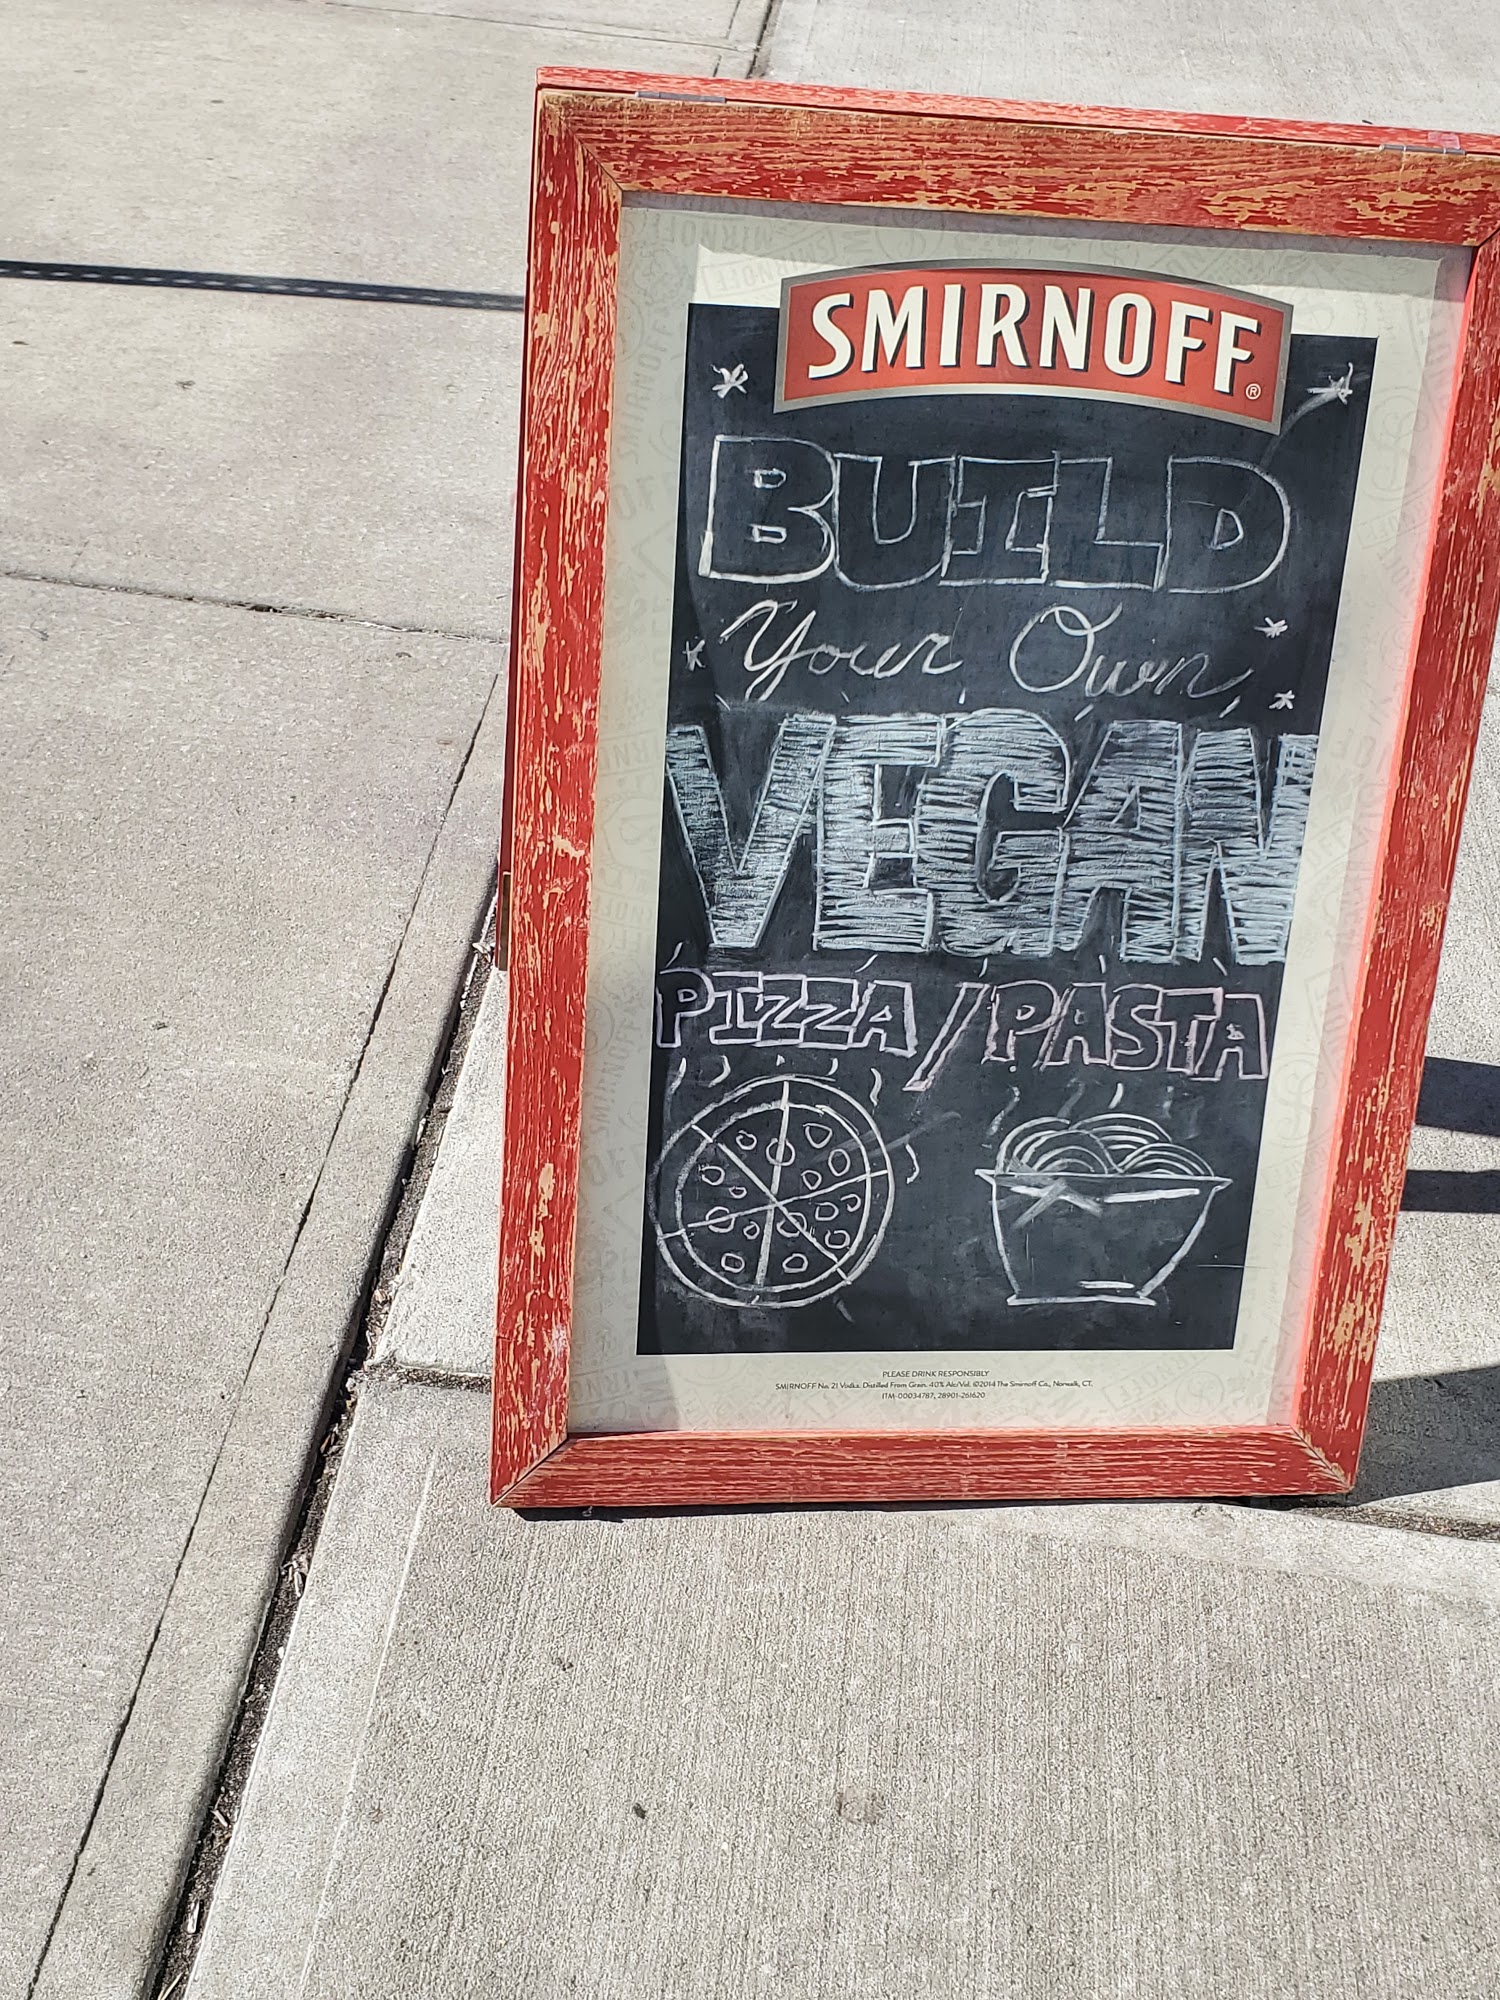 SMIRNOFF®
BUILD
Your Own
VEGAN
PIZZA/PASTA
PLEASE DRINK RESPONSIBLY
SMIRNOFF No. 21 Vodka. Distilled From Grain. 40% Alc/Vol. ©2014 The Smirnoff Co., Norwalk, CT.
ITM-00034787; 28901-261620